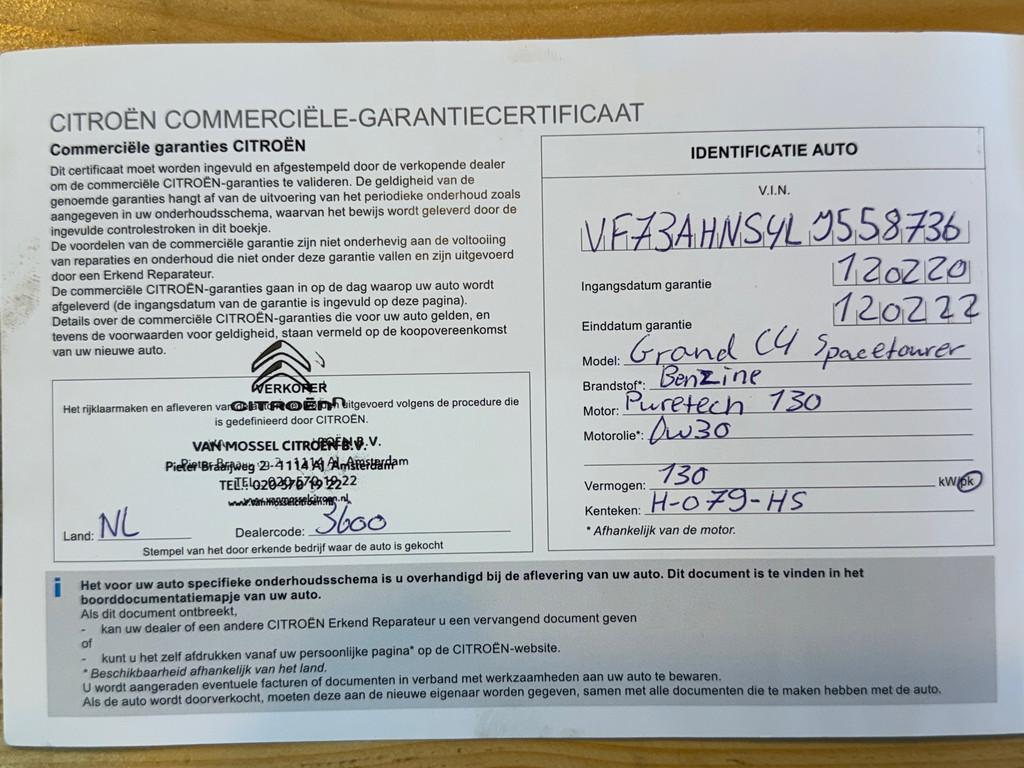 CITROËN COMMERCIËLE-GARANTIECERTIFICAAT
Commerciële garanties CITROËN
Dit certificaat moet worden ingevuld en afgestempeld door de verkopende dealer
om de commerciële CITROËN-garanties te valideren. De geldigheid van de
genoemde garanties hangt af van de uitvoering van het periodieke onderhoud zoals
aangegeven in uw onderhoudsschema, waarvan het bewijs wordt geleverd door de
ingevulde controlestroken in dit boekje.
De voordelen van de commerciële garantie zijn niet onderhevig aan de voltooiing
van reparaties en onderhoud die niet onder deze garantie vallen en zijn uitgevoerd
door een Erkend Reparateur.
De commerciële CITROËN-garanties gaan in op de dag waarop uw auto wordt
afgeleverd (de ingangsdatum van de garantie is ingevuld op deze pagina).
Details over de commerciële CITROËN-garanties die voor uw auto gelden, en
tevens de voorwaarden voor geldigheid, staan vermeld op de koopovereenkomst
van uw nieuwe auto.
VERKOPER
CITROËN
Het rijklaarmaken en afleveren van uitgevoerd volgens de procedure die
is gedefinieerd door CITROËN.
VAN MOSSEL CITROËN B.V.
Pieter Braaijweg 2 - 1114 AJ Amsterdam
TEL.: 020-570 19 22
www.vanmosselcitroen.nl
Land: NL Dealercode: 3600
Stempel van het door erkende bedrijf waar de auto is gekocht
IDENTIFICATIE AUTO
V.I.N.
VF73AHNSYLJ558736
Ingangsdatum garantie 120220
Einddatum garantie 120222
Model: Grand C4 Spacetourer
Brandstof*: Benzine
Motor: Puretech 130
Motorolie*: 0w30
Vermogen: 130 kW/pk
Kenteken: H-079-HS
* Afhankelijk van de motor.
i Het voor uw auto specifieke onderhoudsschema is u overhandigd bij de aflevering van uw auto. Dit document is te vinden in het
boorddocumentatiemapje van uw auto.
Als dit document ontbreekt,
- kan uw dealer of een andere CITROËN Erkend Reparateur u een vervangend document geven
of
- kunt u het zelf afdrukken vanaf uw persoonlijke pagina* op de CITROËN-website.
* Beschikbaarheid afhankelijk van het land.
U wordt aangeraden eventuele facturen of documenten in verband met werkzaamheden aan uw auto te bewaren.
Als de auto wordt doorverkocht, moeten deze aan de nieuwe eigenaar worden gegeven, samen met alle documenten die te maken hebben met de auto.